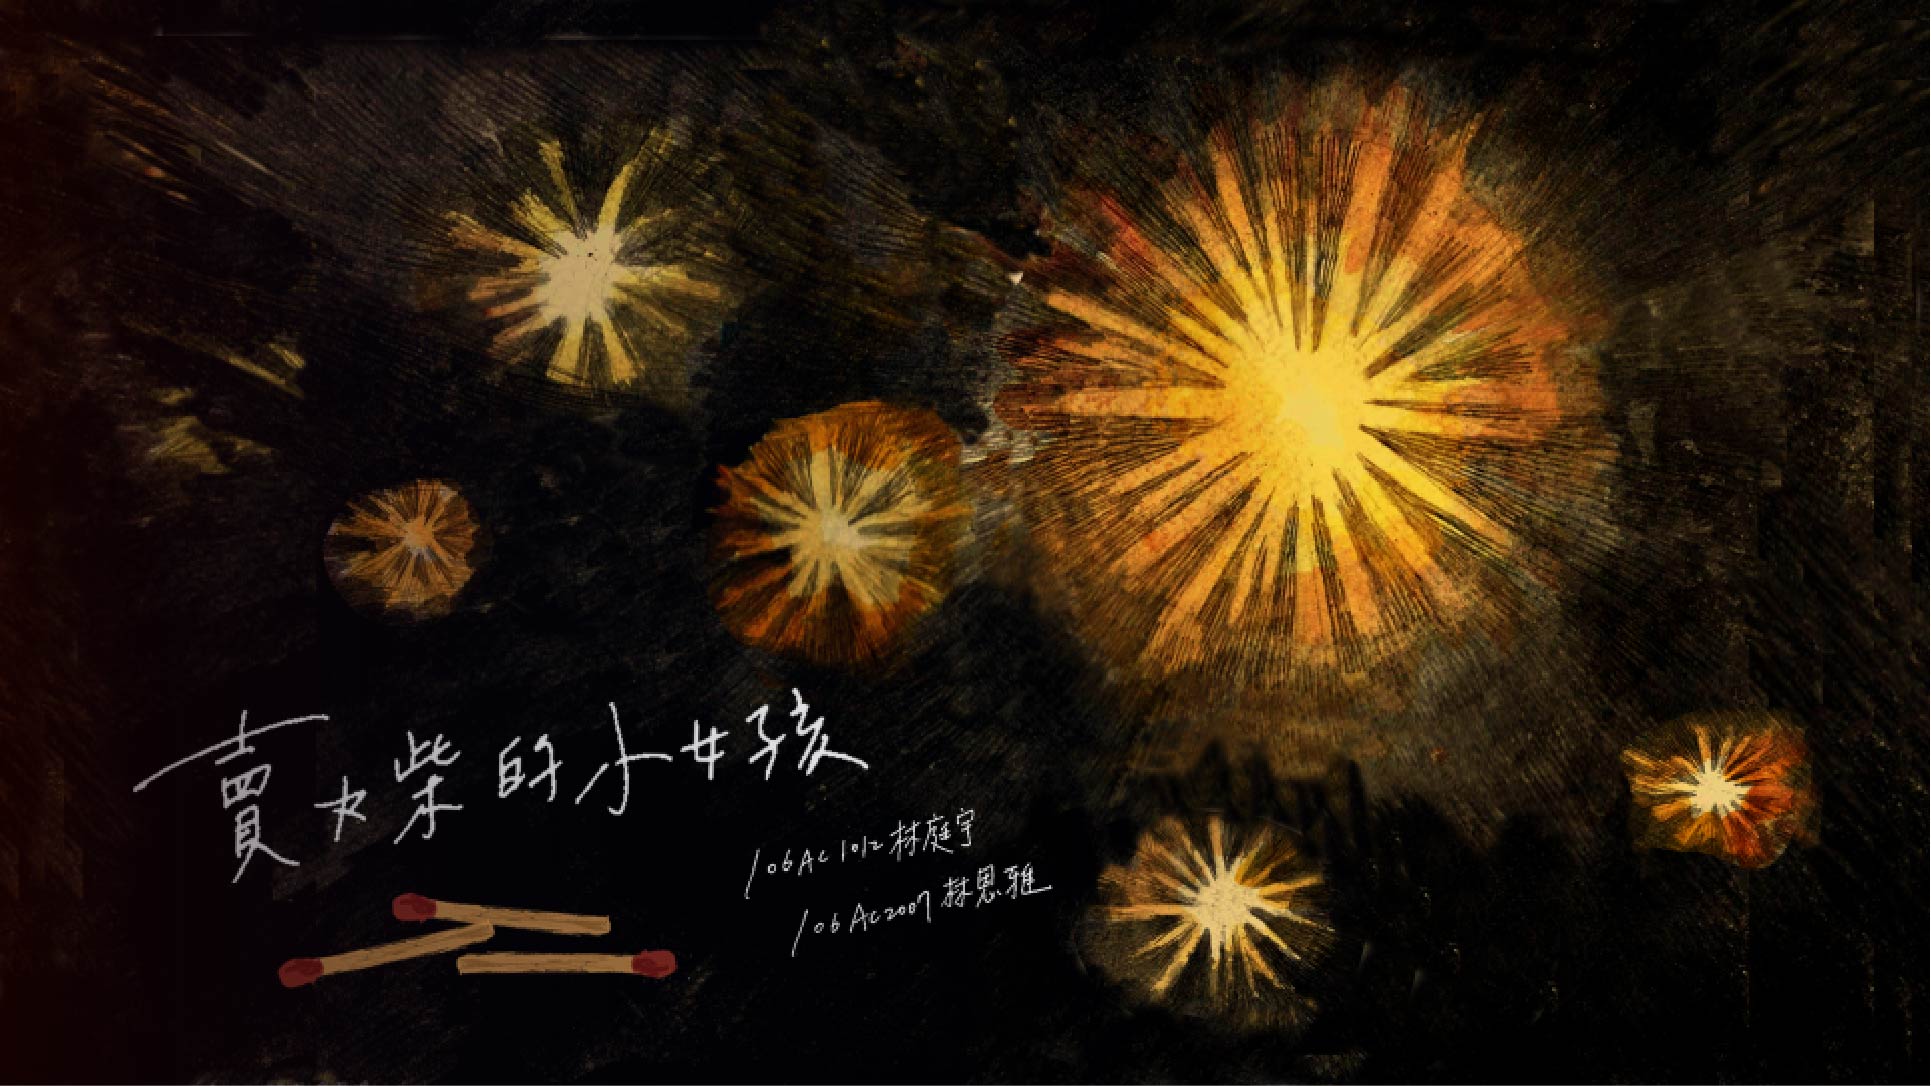 賣火柴的小女孩
106AC1012 林庭宇
106AC2007 林恩雅